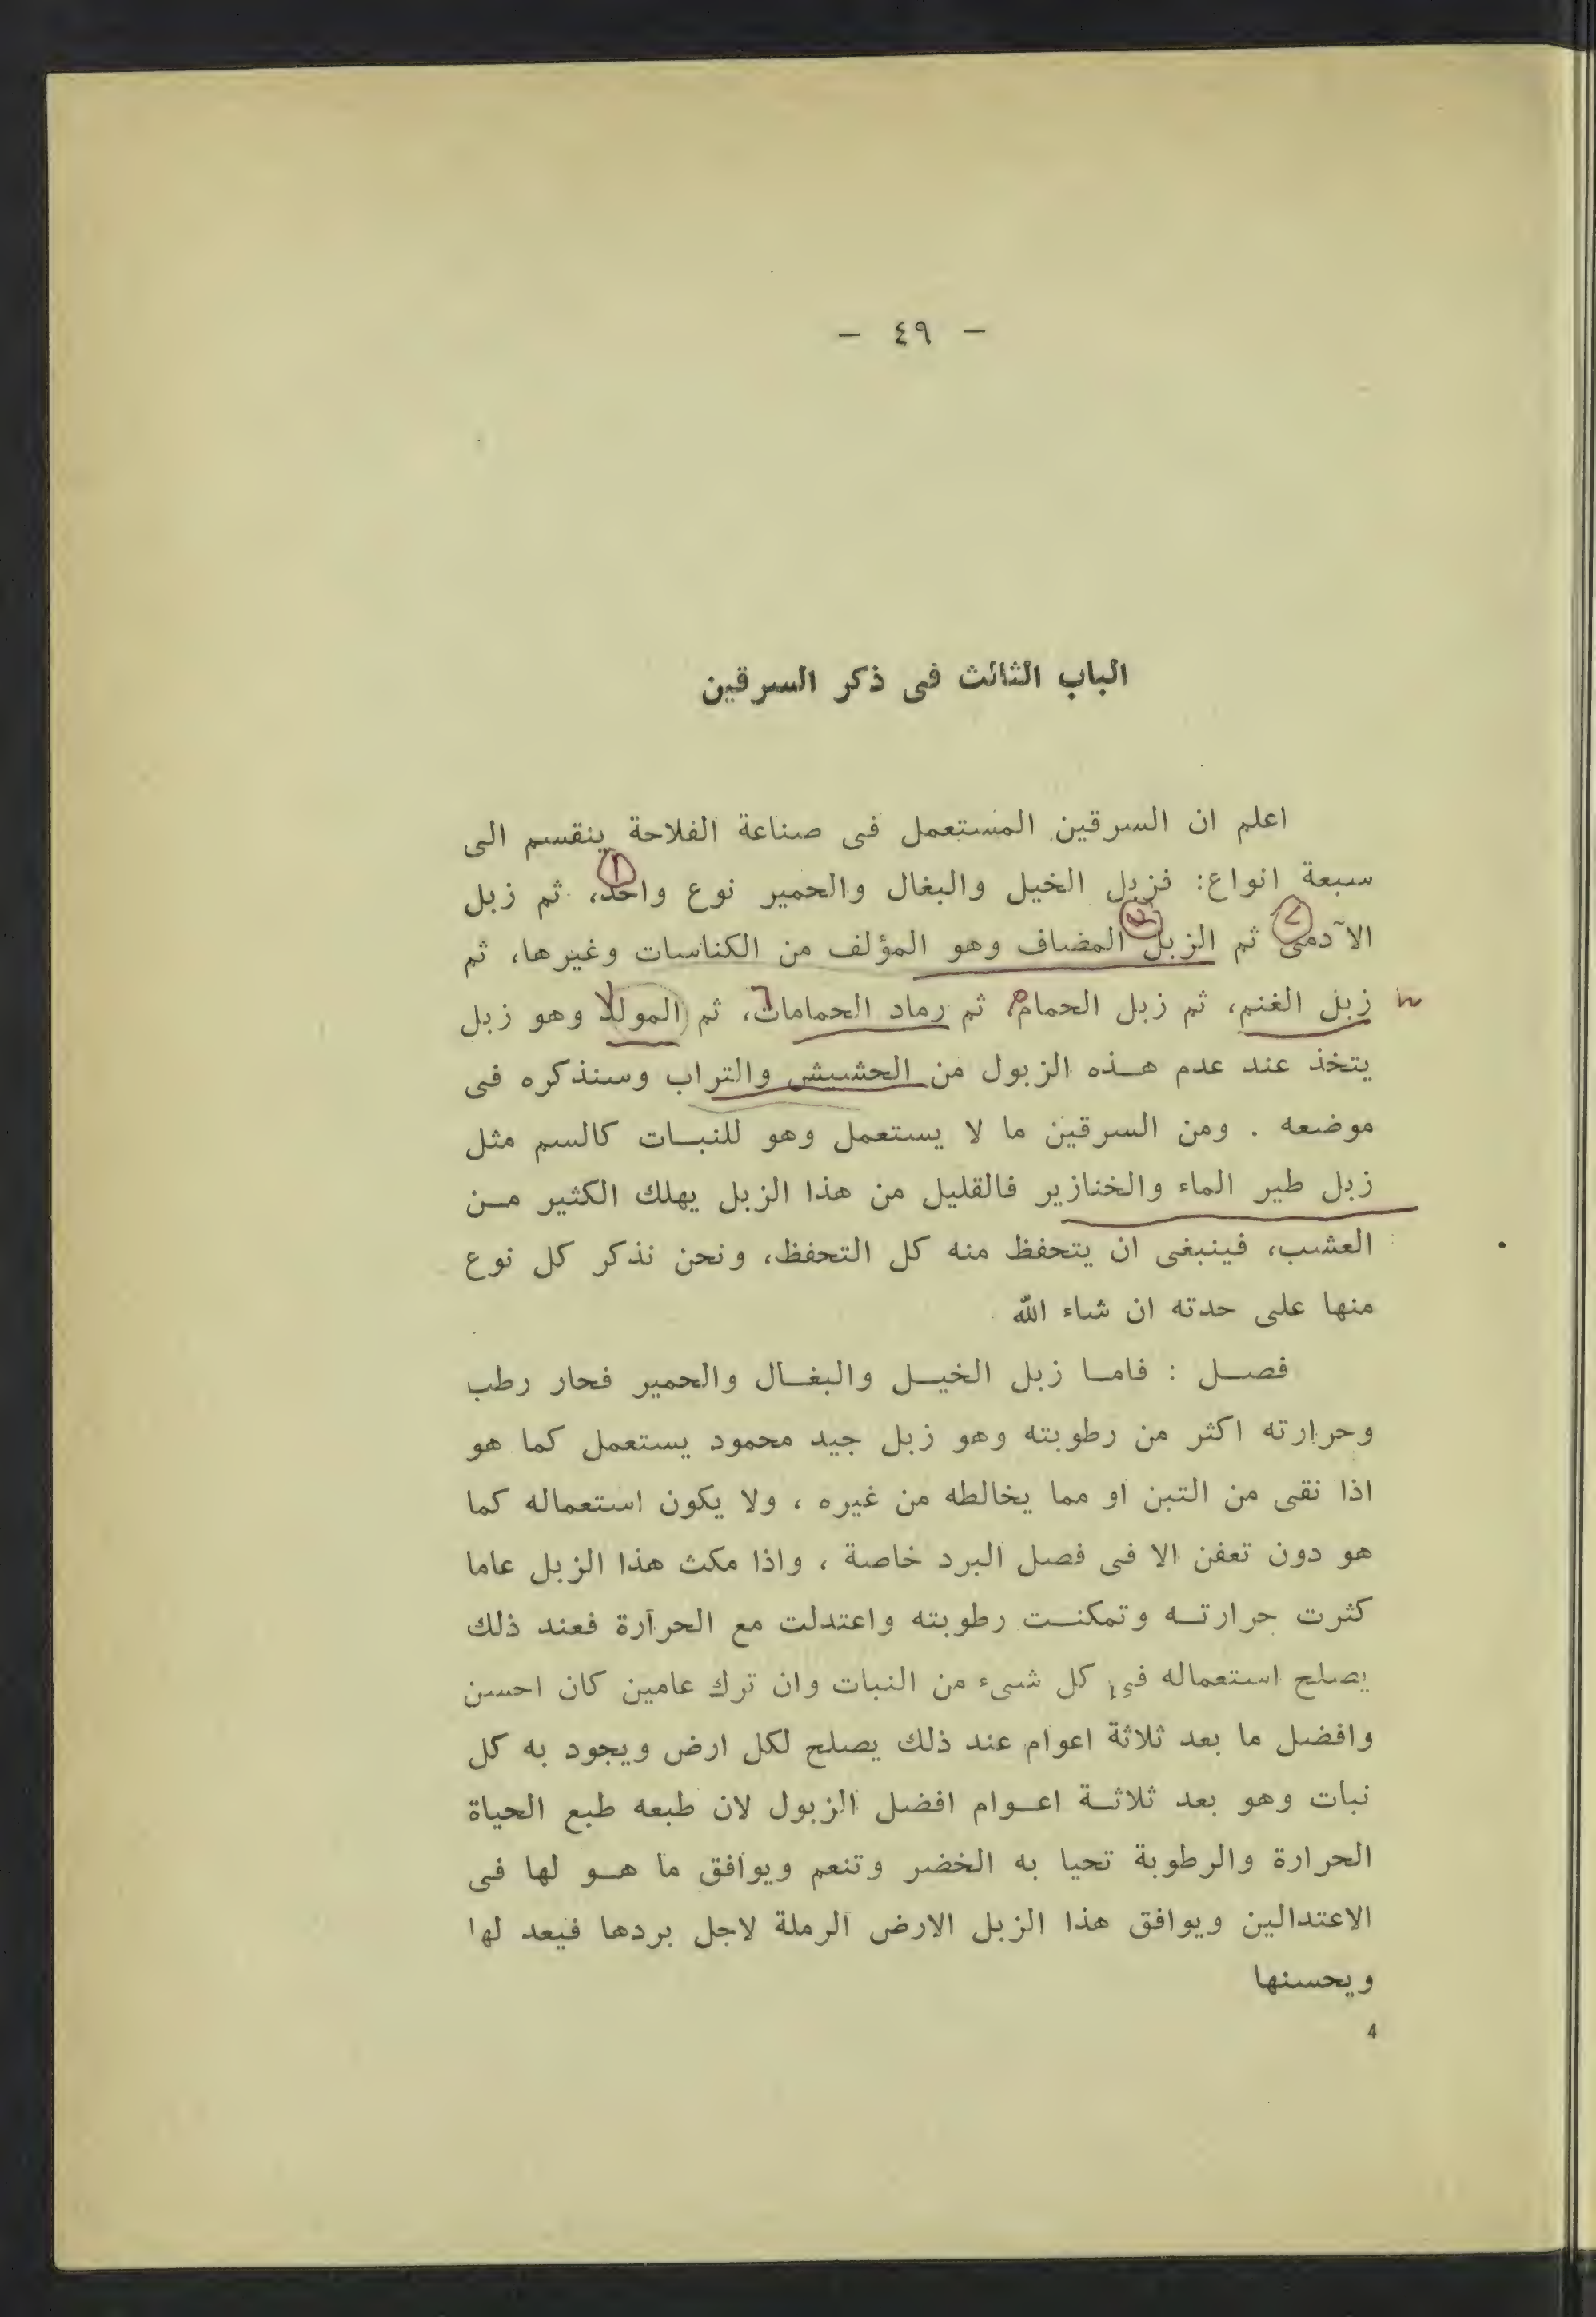 — ٤٩ —
الباب الثالث فى ذكر السرقين
اعلم ان السرقين المستعمل فى صناعة الفلاحة ينقسم الى
سبعة انواع: فزبل الخيل والبغال والحمير نوع واحد، ثم زبل
الآدمى ثم الزبل المضاف وهو المؤلف من الكناسات وغيرها، ثم
زبل الغنم، ثم زبل الحمام، ثم رماد الحمامات، ثم المولد وهو زبل
يتخذ عند عدم هـذه الزبول من الحشيش والتراب وسنذكره فى
موضعه . ومن السرقين ما لا يستعمل وهو للنبـات كالسم مثل
زبل طير الماء والخنازير فالقليل من هذا الزبل يهلك الكثير مـن
العشب، فينبغى ان يتحفظ منه كل التحفظ، ونحن نذكر كل نوع
منها على حدته ان شاء الله
فصـل : فامـا زبل الخيـل والبغـال والحمير فحار رطب
وحرارته اكثر من رطوبته وهو زبل جيد محمود يستعمل كما هو
اذا نقى من التبن او مما يخالطه من غيره ، ولا يكون استعماله كما
هو دون تعفن الا فى فصل البرد خاصة ، واذا مكث هذا الزبل عاما
كثرت حرارتـه وتمكنـت رطوبته واعتدلت مع الحرارة فعند ذلك
يصلح استعماله فى كل شىء من النبات وان ترك عامين كان احسن
وافضل ما بعد ثلاثة اعوام عند ذلك يصلح لكل ارض ويجود به كل
نبات وهو بعد ثلاثـة اعـوام افضل الزبول لان طبعه طبع الحياة
الحرارة والرطوبة تحيا به الخضر وتنعم ويوافق ما هـو لها فى
الاعتدالين ويوافق هذا الزبل الارض الرملة لاجل بردها فيعد لها
ويحسنها
4